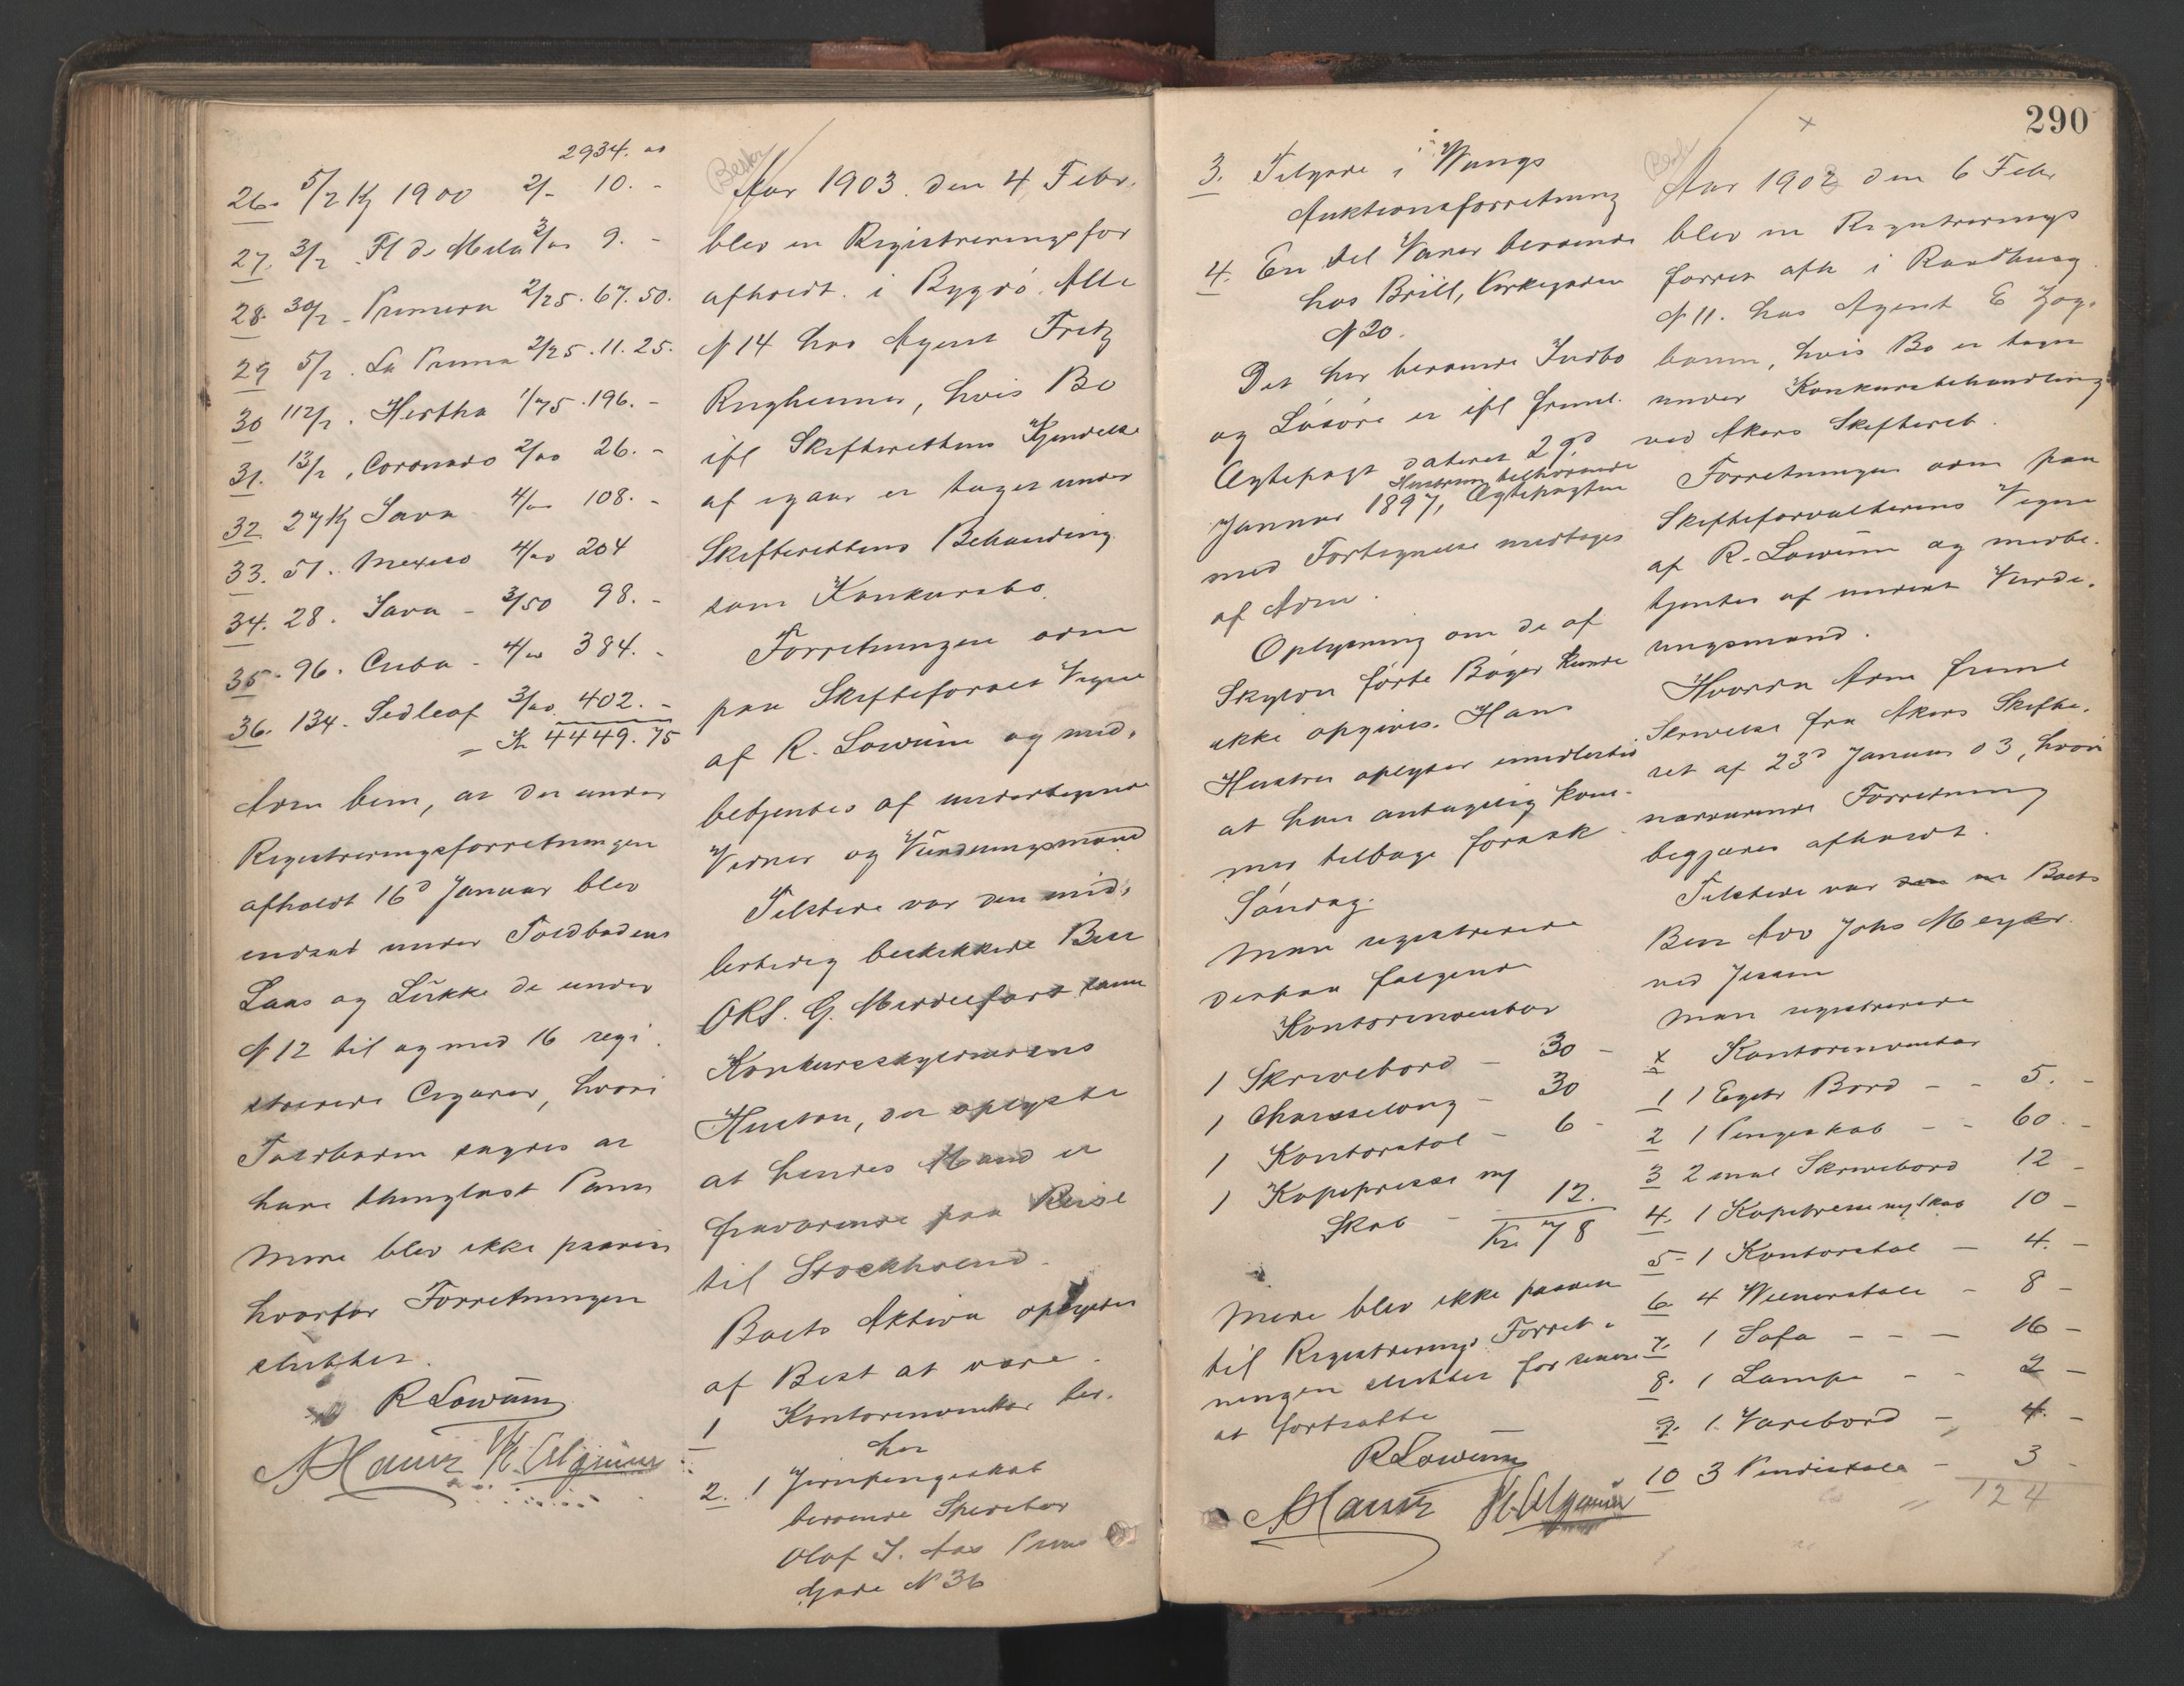 2934. 00
26. 5/2 Kj 1900 2/- 10. -
27. 3/2 . Fl de Mela 3/00 9. -
28. 30/2 - Primera 2/25 . 67. 50.
29 5/2 . La Prima 2/25 . 11. 25.
30 112/2 . Hertha 1/75 . 196. -
31. 13/2 , Coronado 2/00 26. -
32 27 Kj Java 4/00 108. -
33. 51. Mexico 4/00 204
34. 28. Java - 3/50 98. -
35. 96. Cuba - 4/00 384. -
36. 134. Sedleaf 3/00 402. -
= Kr 4449. 75
Adm bem, at der under
Registreringsforretningen
afholdt 16d Januar blev
indsat under Toldbodens
Laas og Lukke de under
N 12 til og med 16 regi-
strerede Cigarer, hvori
Toldboden sagdes at
have thinglæst Pant
Mere blev ikke paavist
hvorfor Forretningen
sluttet.
R Lowum
Aar 1903. den 4 Febr.
blev en Registreringsfor
afholdt i Bygdö Alle
N 14 hos Agent Fritz
Ringheimer, hvis Bo
ifl Skifterettens Kjendelse
af igaar er taget under
Skifterettens Behandling
som Konkursbo.
Forretningen adm
paa Skifteforvs Vegne
af R. Lowum og med-
betjentes af undertegnede
Vidner og Vurderingsmænd
Tilstede var den mid-
lertidig beskikkede Best
ORS. G. Middelfart samt
Konkursskyldnerens
Hustru, der oplyste
at hendes Mand er
fraværende paa Reise
til Stockholmd.
Boets Aktiva oplystes
af Best at være
1 Kontorinventar her.
her
2. 1 Jernpengeskab
beroende Speditør
Olaf T. Aas Prins
Gade N 36
290
3. Tilgode i Wangs
Auktionsforretning
4. En del Varer beroende
hos Brill, Kirkegaden
N 20.
Det her beroende Indbo
og Løsøre er ifl freml.
Ægtepagt dateret 29d
Hustruen tilhørende
Januar 1897, Ægtepagten
med Fortegnelse medtoges
af Adm.
Oplysning om de af
Skyldn førte Bøger kunde
ikke opgives. Hans
Hustru oplyser imidlertid
at han antagelig kom-
mer tilbage förstk
Söndag.
Man registrerede
derpaa følgende
Kontorinventar
1 Skrivebord - 30 -
1 Chaiselong - 30
1 Kontorstol - 6 -
1 Kopipresse m/
Skab - 12.
Kr. 78
Mere blev ikke paavist
til Registrering. Forret-
ningen sluttet for senere
at fortsætte
R Lowum
Aar 1903 den 6 Febr
blev en Registrerings
forret afh i Raadhusg.
N 11. hos Agent E Zog-
baum, hvis Bo er tagen
under Konkursbehandling
ved Akers Skifteret.
Forretningen adm paa
Skifteforvalterens Vegne
af R. Lowum og medbe-
tjentes af undert Vurde-
ingsmænd.
Hvorda Adm freml
Skrivelse fra Akers Skifte-
ret af 23d Januar 03, hvori
nærværende Forretning
begjæres afholdt.
Tilstede var Boets
Best Adv Johs Meyer.
Man registrerede
x Kontorinventar
1 1 Egetr Bord - - 5. -
2 1 Pengeskab - - 60. -
3 2 mal Skrivebord 12 -
4. 1 Kopipresse m/ Skab 10 -
5 - 1 Kontorstol - 4. -
6. 4 Wienerstole - 8 -
7. 1 Sofa - - - 16 -
8. 1 Lampe - - 2 -
9. 1. Varebord - 4. -
10 3 Pindestole - 3 -
= 124